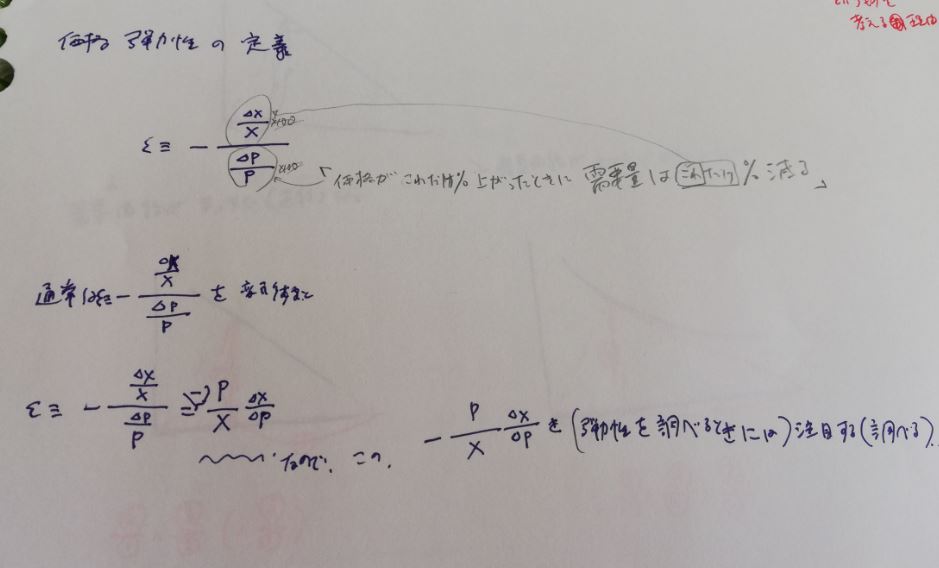 考える理由
価格弾力性の定義
ε ≡ - (ΔX/X ×100) / (ΔP/P ×100)
「価格がこれだけ%上がったときに 需要量は これだけ % 減る」
通常はε≡ - (ΔX/X) / (ΔP/P) を
ε ≡ - (ΔX/X) / (ΔP/P) = - P/X ΔX/ΔP
なので、この、 - P/X ΔX/ΔP を (弾力性を調べるときには) 注目する (調べる)